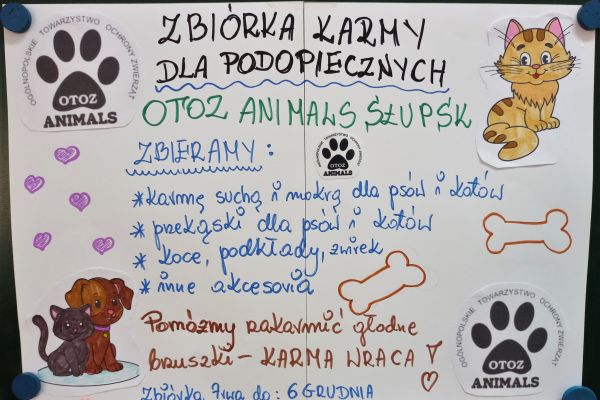 ZBIÓRKA KARMY
DLA PODOPIECZNYCH
OTOZ ANIMALS SŁUPSK
ZBIERAMY:
*karmę suchą i mokrą dla psów i kotów
*przekąski dla psów i kotów
*koce, podkłady, żwirek
*inne akcesoria
Pomóżmy nakarmić głodne
brzuszki - KARMA WRACA!
Zbiórka trwa do: 6 GRUDNIA
OGÓLNOPOLSKIE TOWARZYSTWO OCHRONY ZWIERZĄT
OTOZ
ANIMALS
OTOZ
ANIMALS
OGÓLNOPOLSKIE TOWARZYSTWO OCHRONY ZWIERZĄT
OTOZ
ANIMALS